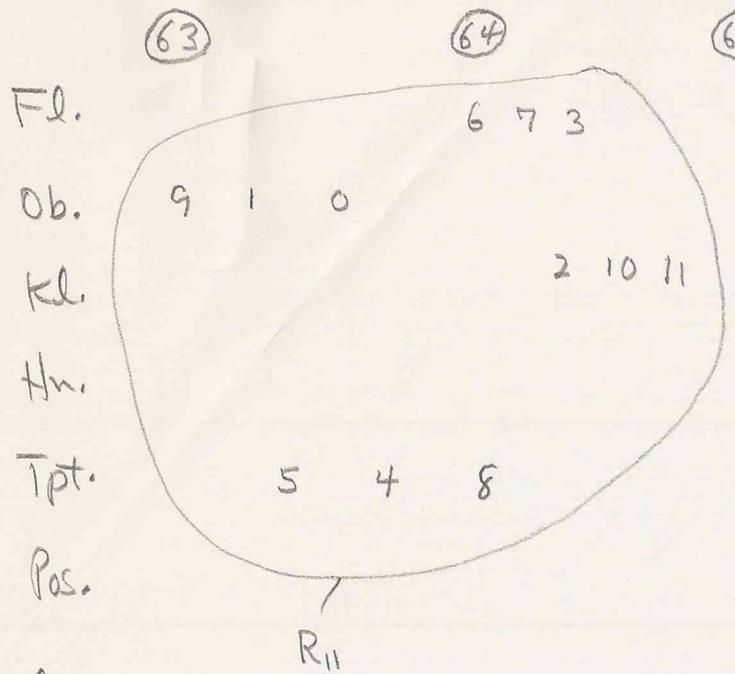 63 64
Fl. 6 7 3
Ob. 9 1 0
Kl. 2 10 11
Hn.
Tpt. 5 4 8
Pos.
R11